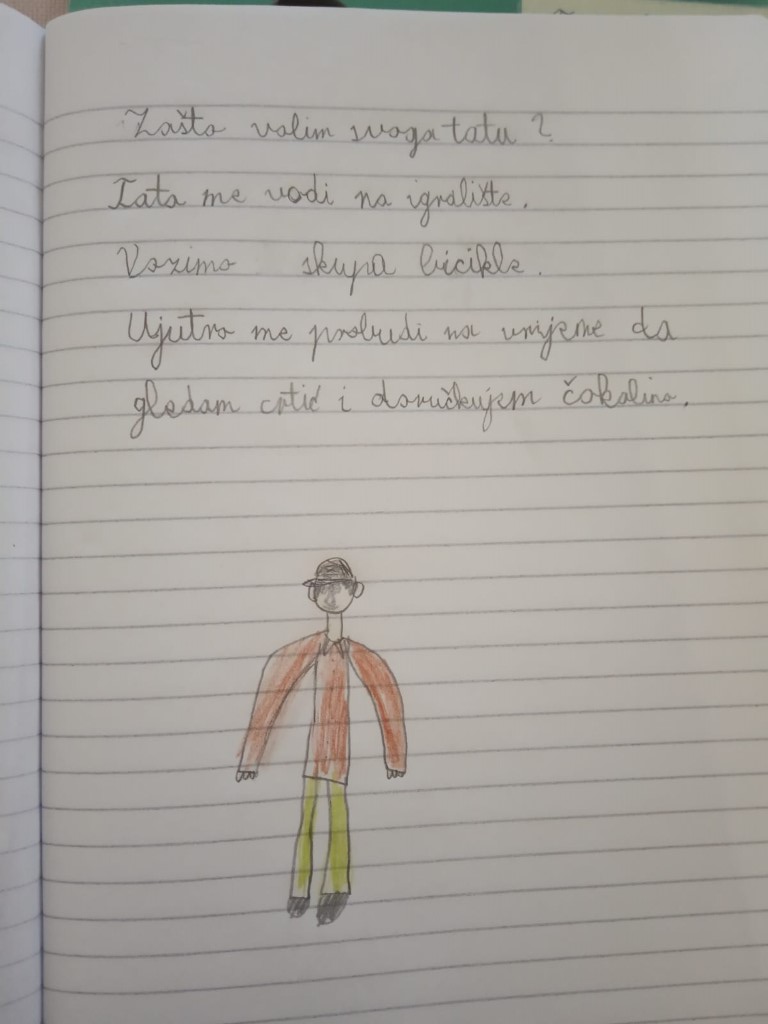 Zašto volim svoga tatu?
Tata me vodi na igralište.
Vozimo skupa bicikle.
Ujutro me probudi na vrijeme da
gledam crtić i doručkujem čokolino.